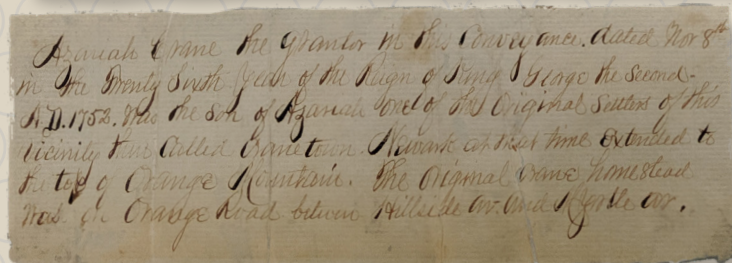 Azariah Crane the Grantor in this Conveyance. dated Nov 8th
in the Twenty Sixth Year of the Reign of King George the Second-
A.D. 1752. Was the Son of Azariah one of the Original Settlers of this
vicinity then Called Cranetown. Newark at that time extended to
the top of Orange Mountain. The Original Crane homestead
Was on Orange Road between Hillside Av. and Myrtle av.